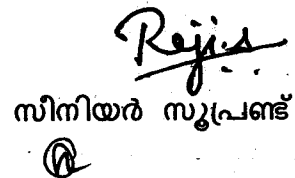 Reji.s
സീനിയർ സൂപ്രണ്ട്